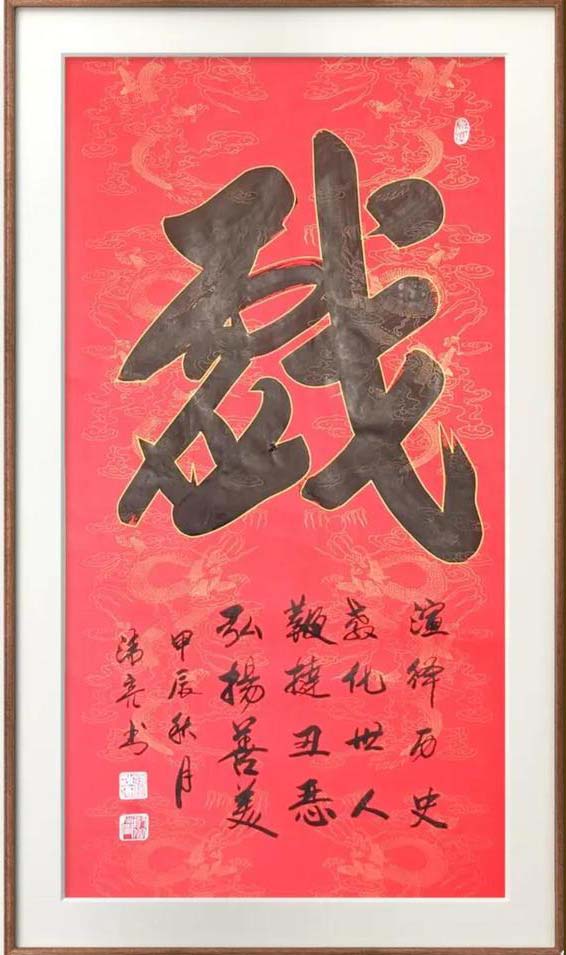 戲
演绎历史
教化世人
鞭撻丑恶
弘揚善美
甲辰秋月
潘亮书